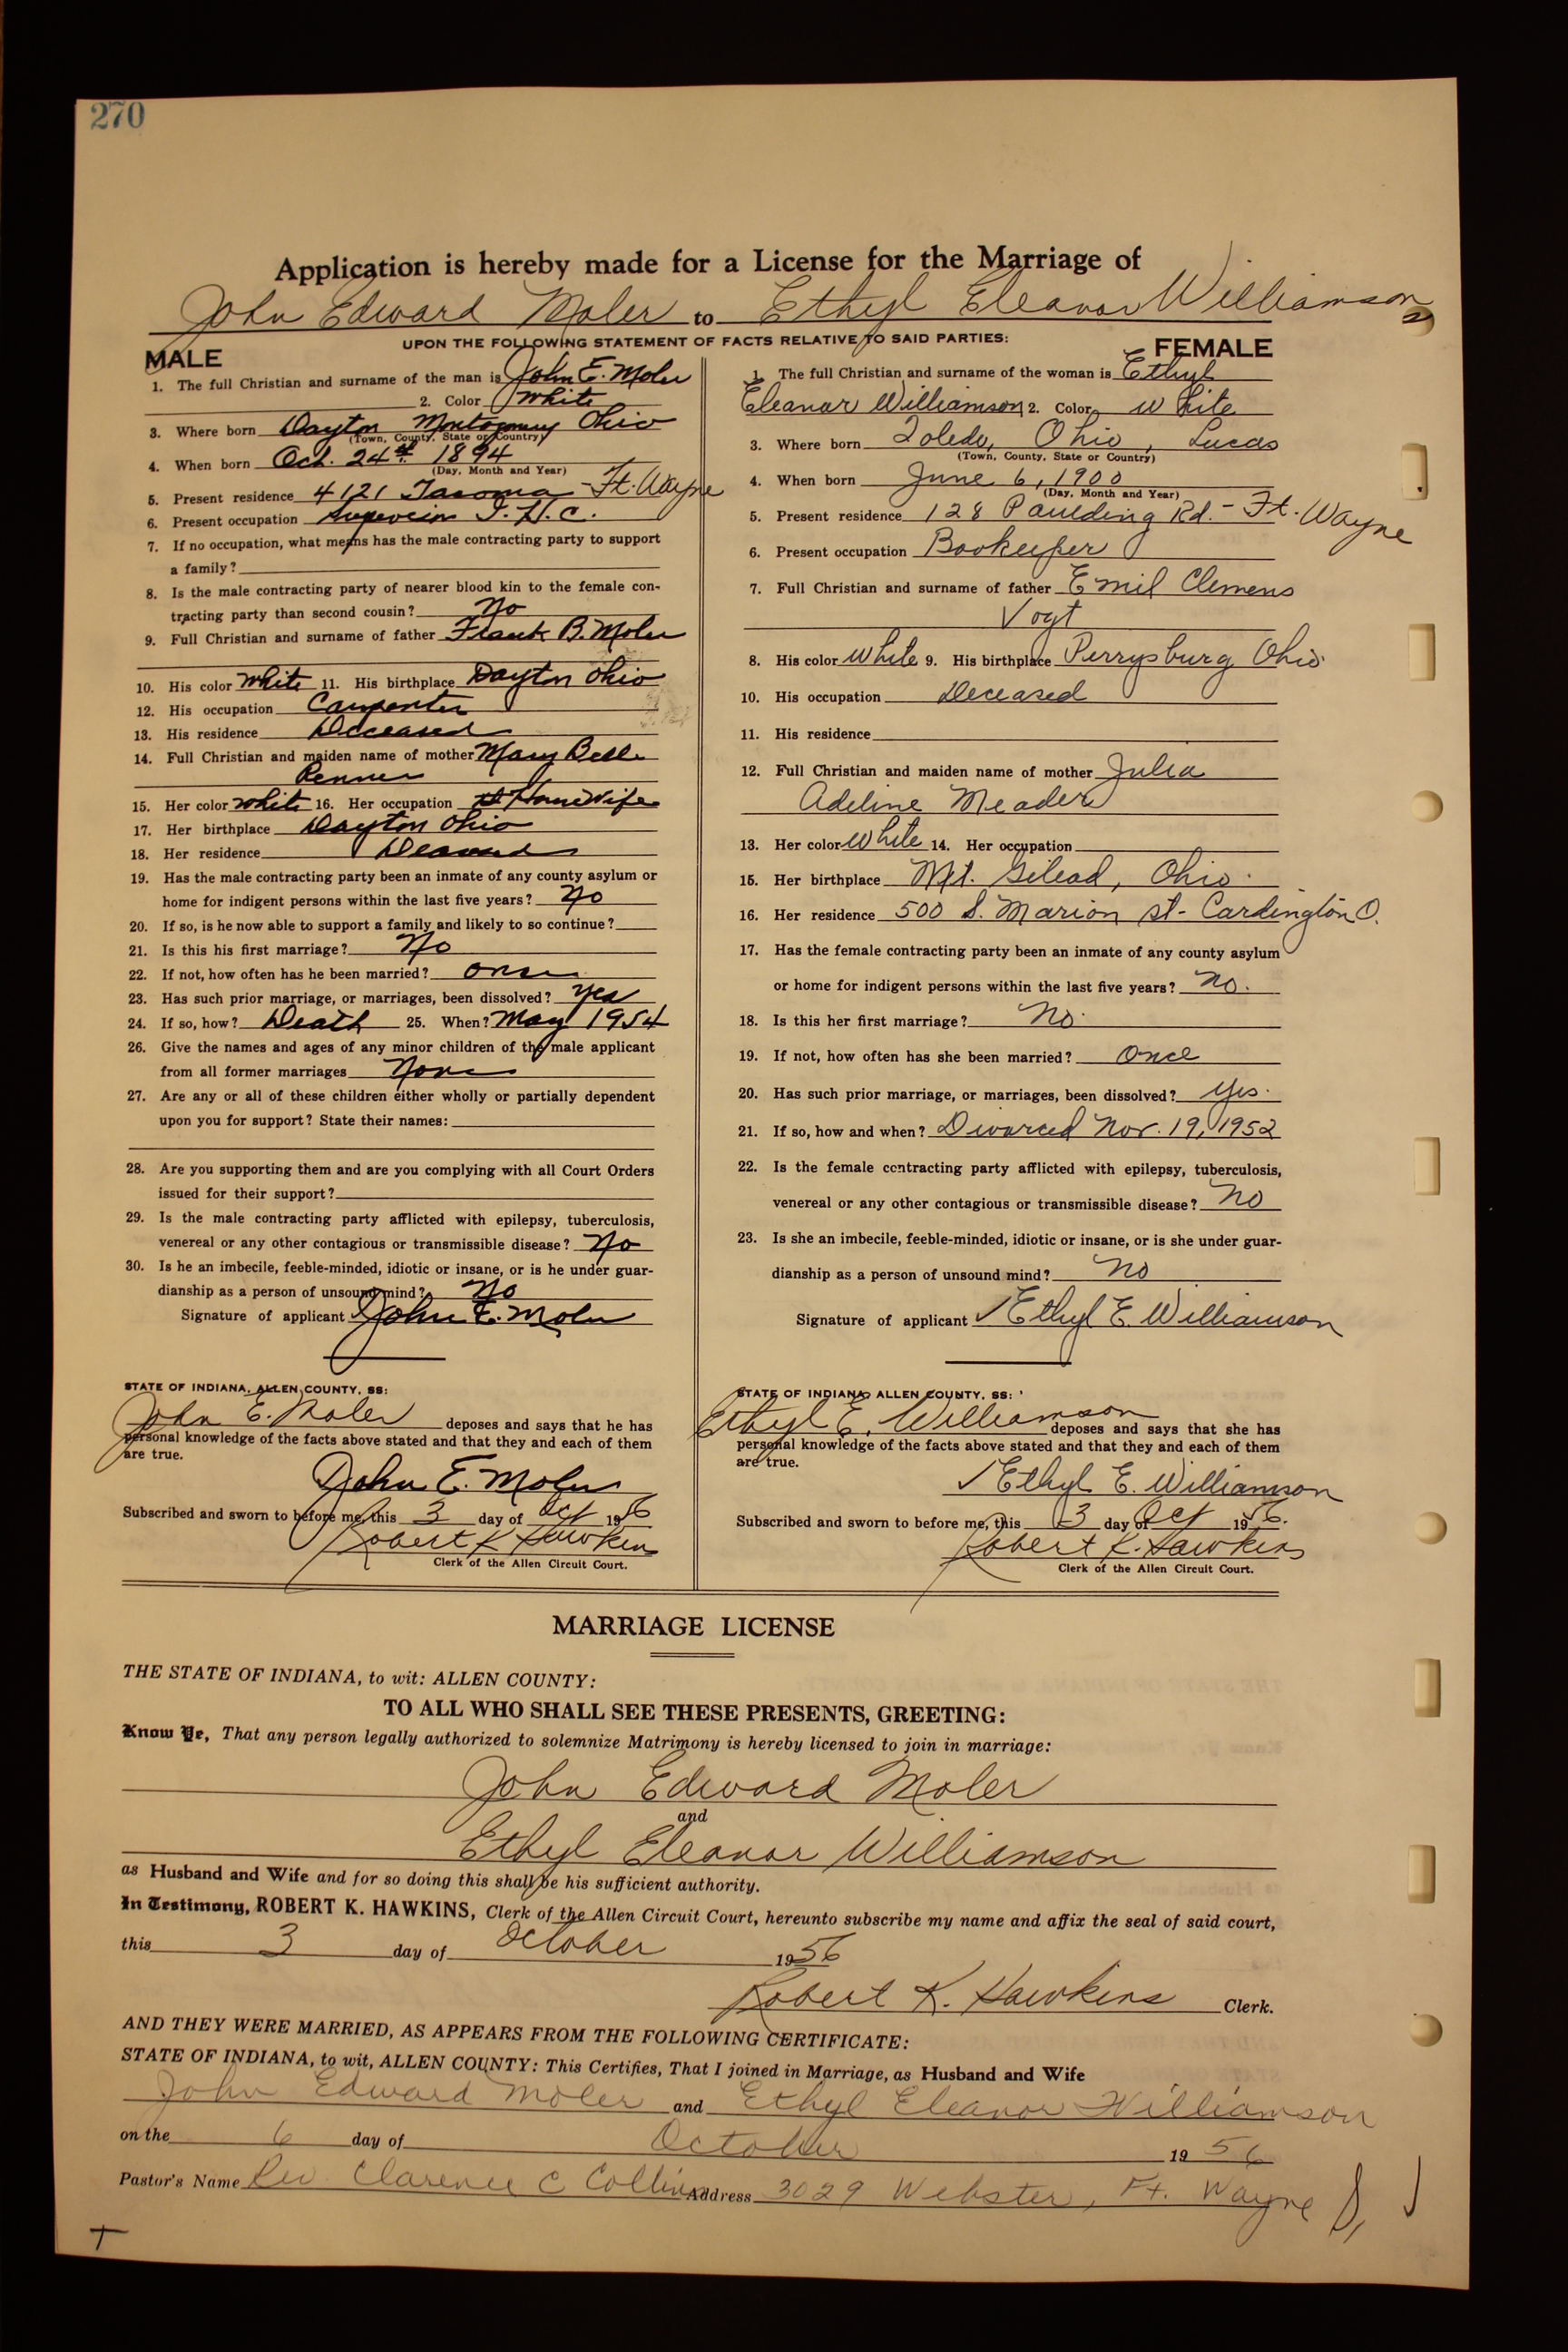 270
Application is hereby made for a License for the Marriage of
John Edward Moler to Ethyl Eleanor Williamson
UPON THE FOLLOWING STATEMENT OF FACTS RELATIVE TO SAID PARTIES:
MALE
1. The full Christian and surname of the man is John E. Moler
2. Color White
3. Where born Dayton Montgomery Ohio
(Town, County, State or Country)
4. When born Oct. 24th 1894
(Day, Month and Year)
5. Present residence 4121 Tacoma - Ft. Wayne
6. Present occupation I. H. C.
7. If no occupation, what means has the male contracting party to support
a family?
8. Is the male contracting party of nearer blood kin to the female con-
tracting party than second cousin? No
9. Full Christian and surname of father Frank B. Moler
10. His color White 11. His birthplace Dayton Ohio
12. His occupation Carpenter
13. His residence Deceased
14. Full Christian and maiden name of mother Mary Belle
Renner
15. Her color White 16. Her occupation HouseWife
17. Her birthplace Dayton Ohio
18. Her residence Deceased
19. Has the male contracting party been an inmate of any county asylum or
home for indigent persons within the last five years? No
20. If so, is he now able to support a family and likely to so continue?
21. Is this his first marriage? No
22. If not, how often has he been married? once
23. Has such prior marriage, or marriages, been dissolved? Yes
24. If so, how? Death 25. When? May 1954
26. Give the names and ages of any minor children of the male applicant
from all former marriages None
27. Are any or all of these children either wholly or partially dependent
upon you for support? State their names:
28. Are you supporting them and are you complying with all Court Orders
issued for their support?
29. Is the male contracting party afflicted with epilepsy, tuberculosis,
venereal or any other contagious or transmissible disease? No
30. Is he an imbecile, feeble-minded, idiotic or insane, or is he under guar-
dianship as a person of unsound mind? No
Signature of applicant John E. Moler
STATE OF INDIANA, ALLEN COUNTY, SS:
John E. Moler deposes and says that he has
personal knowledge of the facts above stated and that they and each of them
are true.
John E. Moler
Subscribed and sworn to before me, this 3 day of Oct 1956
Robert K Hawkins
Clerk of the Allen Circuit Court.
FEMALE
1. The full Christian and surname of the woman is Ethyl
Eleanor Williamson 2. Color White
3. Where born Toledo, Ohio, Lucas
(Town, County, State or Country)
4. When born June 6, 1900
(Day, Month and Year)
5. Present residence 128 Paulding Rd. - Ft. Wayne
6. Present occupation Bookeeper
7. Full Christian and surname of father Emil Clemens
Vogt
8. His color White 9. His birthplace Perrysburg Ohio
10. His occupation Deceased
11. His residence
12. Full Christian and maiden name of mother Julia
Adeline Meader
13. Her color White 14. Her occupation
15. Her birthplace Mt. Gilead, Ohio
16. Her residence 500 S. Marion St - Cardington O.
17. Has the female contracting party been an inmate of any county asylum
or home for indigent persons within the last five years? No.
18. Is this her first marriage? No.
19. If not, how often has she been married? Once
20. Has such prior marriage, or marriages, been dissolved? Yes.
21. If so, how and when? Divorced Nov. 19, 1952
22. Is the female contracting party afflicted with epilepsy, tuberculosis,
venereal or any other contagious or transmissible disease? No
23. Is she an imbecile, feeble-minded, idiotic or insane, or is she under guar-
dianship as a person of unsound mind? No
Signature of applicant ✓ Ethyl E. Williamson
STATE OF INDIANA, ALLEN COUNTY, SS:
Ethyl E. Williamson deposes and says that she has
personal knowledge of the facts above stated and that they and each of them
are true.
✓ Ethyl E. Williamson
Subscribed and sworn to before me, this 3 day of Oct 1956.
Robert K. Hawkins
Clerk of the Allen Circuit Court.
MARRIAGE LICENSE
THE STATE OF INDIANA, to wit: ALLEN COUNTY:
TO ALL WHO SHALL SEE THESE PRESENTS, GREETING:
Know Ye, That any person legally authorized to solemnize Matrimony is hereby licensed to join in marriage:
John Edward Moler
and
Ethyl Eleanor Williamson
as Husband and Wife and for so doing this shall be his sufficient authority.
In Testimony, ROBERT K. HAWKINS, Clerk of the Allen Circuit Court, hereunto subscribe my name and affix the seal of said court,
this 3 day of October 1956
Robert K. Hawkins Clerk.
AND THEY WERE MARRIED, AS APPEARS FROM THE FOLLOWING CERTIFICATE:
STATE OF INDIANA, to wit, ALLEN COUNTY: This Certifies, That I joined in Marriage, as Husband and Wife
John Edward Moler and Ethyl Eleanor Williamson
on the 6 day of October 1956
Pastor's Name Rev Clarence C Collins Address 3029 Webster, Ft. Wayne